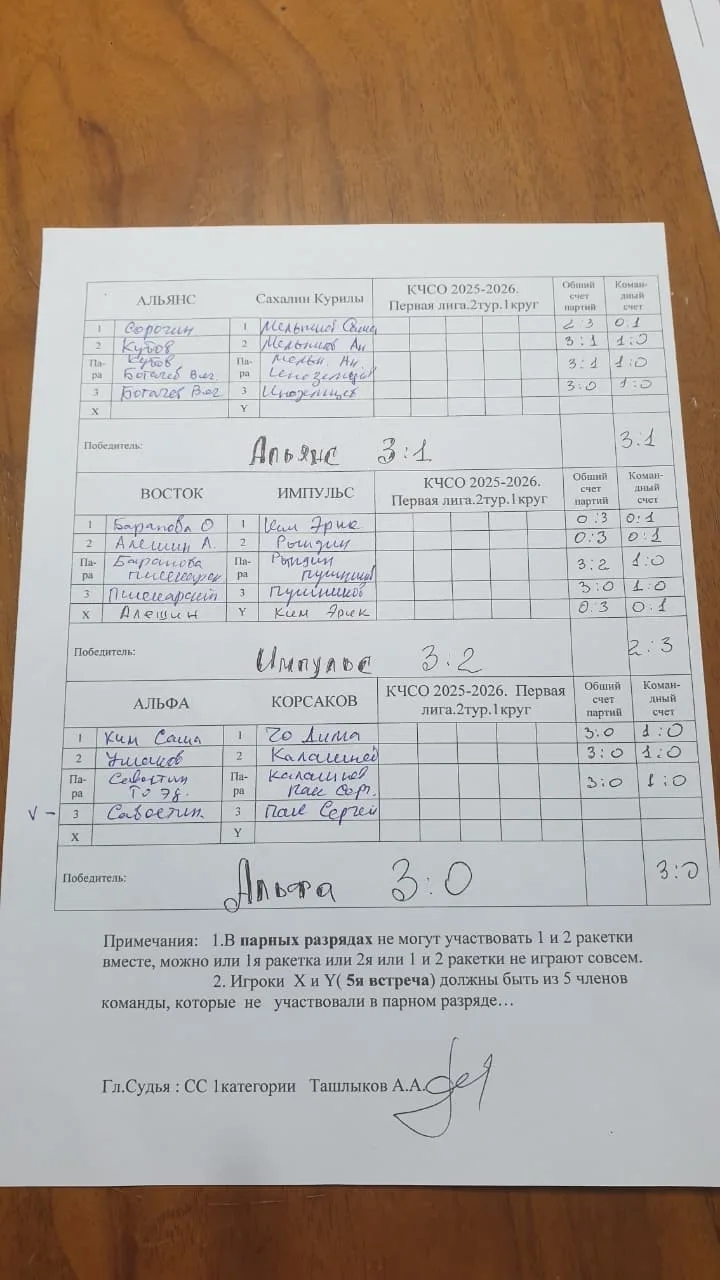 АЛЬЯНС Сахалин Курилы КЧСО 2025-2026. Первая лига.2тур.1круг Общий счет партий Коман-дный счет
1 Сорочин 1 Мельников 2:3 0:1
2 Кубов 2 Мельников Ан 3:1 1:0
Па-ра Кубов Па-ра Мельн. Ан.
Богачев Вяч. Иноземцев 3:1 1:0
3 Богачев Вяч 3 Иноземцев 3:0 1:0
X Y
Победитель: Альянс 3:1 3:1
ВОСТОК ИМПУЛЬС КЧСО 2025-2026. Первая лига.2тур.1круг Общий счет партий Коман-дный счет
1 Баранова О 1 Ким Эрик 0:3 0:1
2 Алешин А. 2 Рындин 0:3 0:1
Па-ра Баранова Па-ра Рындин
Пушников 3:2 1:0
3 3 Пушников 3:0 1:0
X Алешин Y Ким Эрик 0:3 0:1
Победитель: Импульс 3:2 2:3
АЛЬФА КОРСАКОВ КЧСО 2025-2026. Первая лига.2тур.1круг Общий счет партий Коман-дный счет
1 Ким Саша 1 Чо Дима 3:0 1:0
2 Ушаков 2 3:0 1:0
Па-ра Савостин Па-ра
То Эд. Пак Серг. 3:0 1:0
V – 3 Савостин 3 Пак Сергей
X Y
Победитель: Альфа 3:0 3:0
Примечания: 1.В парных разрядах не могут участвовать 1 и 2 ракетки
вместе, можно или 1я ракетка или 2я или 1 и 2 ракетки не играют совсем.
2. Игроки X и Y( 5я встреча) должны быть из 5 членов
команды, которые не участвовали в парном разряде…
Гл.Судья : СС 1категории Ташлыков А.А.